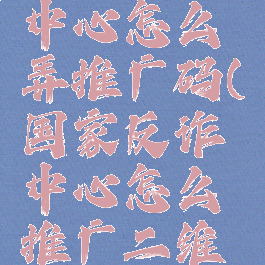 中心怎么
弄推广码(
国家反诈
中心怎么
推广二维